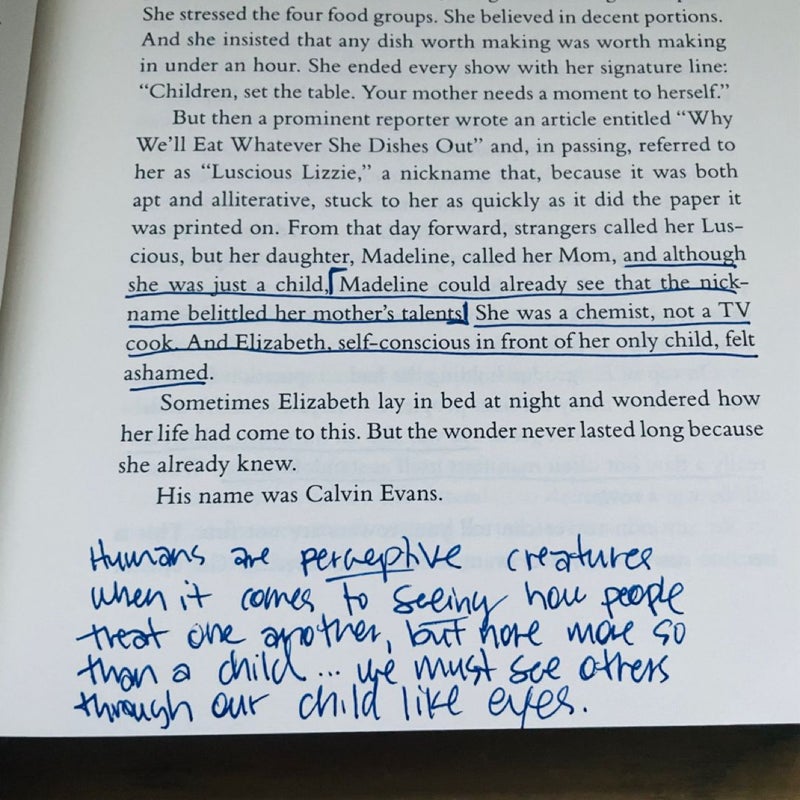 She stressed the four food groups. She believed in decent portions.
And she insisted that any dish worth making was worth making
in under an hour. She ended every show with her signature line:
“Children, set the table. Your mother needs a moment to herself.”
But then a prominent reporter wrote an article entitled “Why
We’ll Eat Whatever She Dishes Out” and, in passing, referred to
her as “Luscious Lizzie,” a nickname that, because it was both
apt and alliterative, stuck to her as quickly as it did the paper it
was printed on. From that day forward, strangers called her Lus-
cious, but her daughter, Madeline, called her Mom, and although
she was just a child, Madeline could already see that the nick-
name belittled her mother’s talents. She was a chemist, not a TV
cook. And Elizabeth, self-conscious in front of her only child, felt
ashamed.
Sometimes Elizabeth lay in bed at night and wondered how
her life had come to this. But the wonder never lasted long because
she already knew.
His name was Calvin Evans.
Humans are perceptive creatures
when it comes to seeing how people
treat one another, but none more so
than a child... we must see others
through our child like eyes.